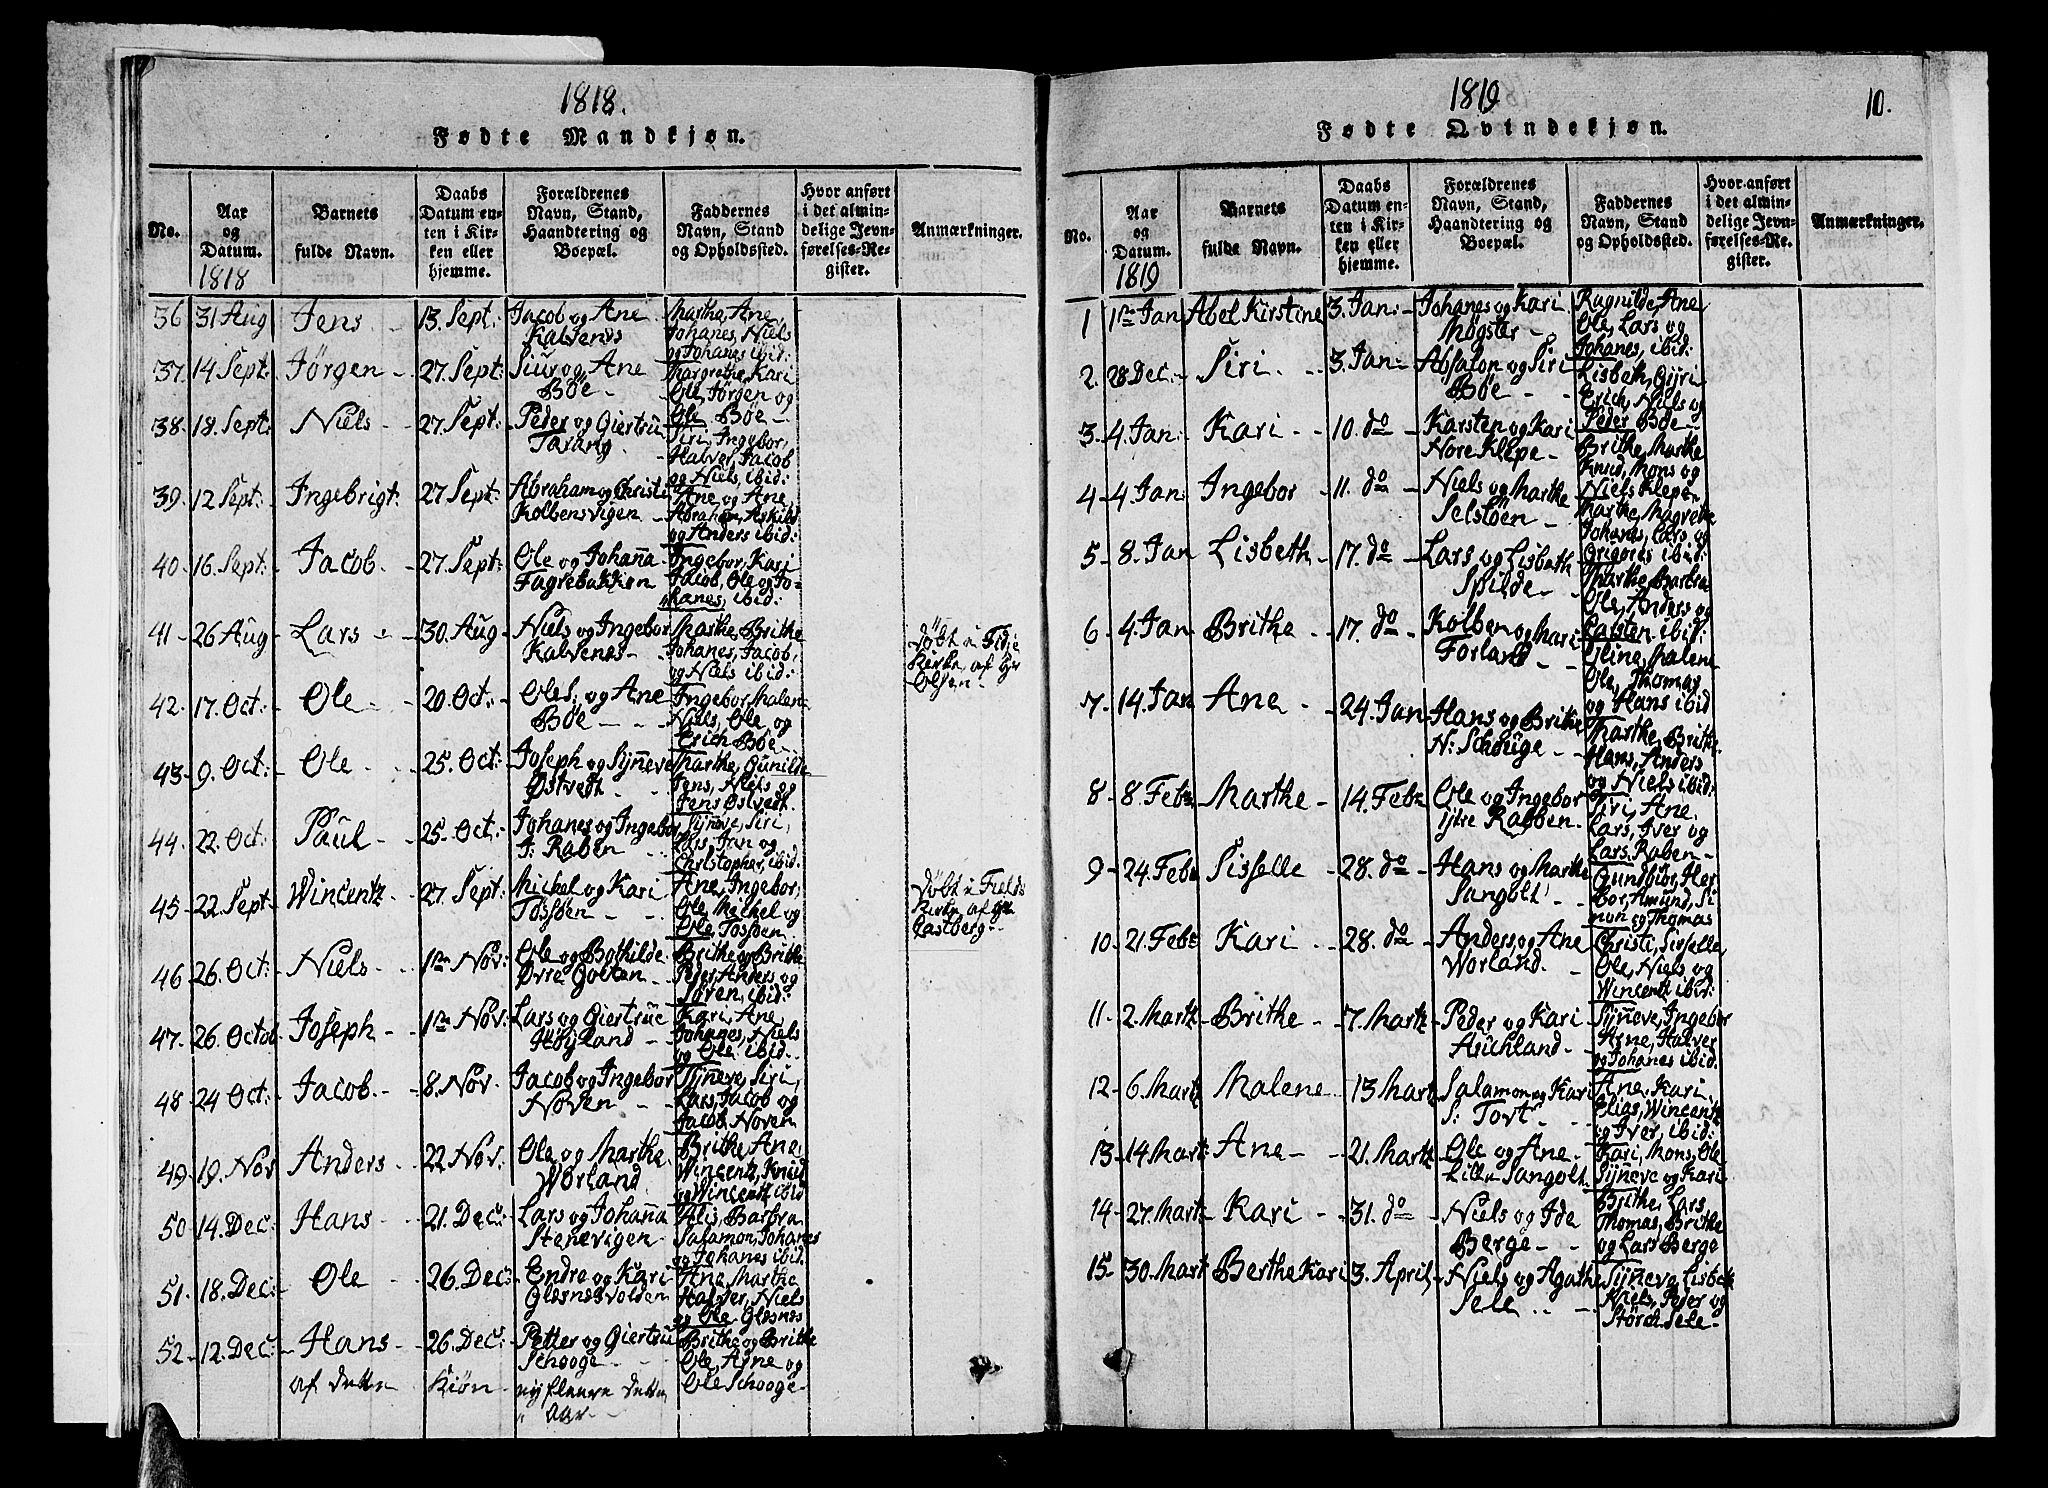 1818.
Fødte Mandkjøn.
No.
Aar
og
Datum.
1818
Barnets
fulde Navn.
Daabs
Datum en-
ten i Kir-
ken eller
hjemme.
Forældrenes
Navn, Stand,
Haandtering og
Boepæl.
Faddernes
Navn, Stand
og Opholdssted.
Hvor anført
i det almin-
delige Jevn-
førelses-Re-
gister.
Anmærkninger.
36 31 Aug Jens 13. Sept: Jacob og Ane
Kalvenes
Marthe, Ane,
Johanes, Niels
og Johanes ibid:
37. 14 Sept: Jörgen 27. Sept: Siur og Ane
Böe
Margrethe, Kari
Ole, Jörgen og
Ole Böe
38. 18. Sept: Niels 27. Sept: Peder og Giertru
Tarang
Siri, Ingebor,
Halver, Jacob
og Niels, ibid:
39. 12 Sept: Ingebrigt: 27 Sept: Abraham og Christi
Kolbensvigen
Ane, og Ane,
Abraham, Askild
og Anders ibid:
40. 16. Sept: Jacob. 27. Sept: Ole og Johanna
Fagrebakken
Ingebor, Kari
Jacob, Ole og Jo-
hanes, ibid:
41 26 Aug Lars 30. Aug Niels og Ingebor
Kalvenes
Marthe, Brithe
Johanes, Jacob,
og Niels ibid:
döbt i
Kirke af Hr
Olsen
42. 17. Oct: Ole 20. Oct: Ole S: og Ane
Böe
Ingebor, Malen
Niels, Ole og
Erich Böe
43 9. Oct: Ole 25. Oct: Joseph og Synneve
Östvedt
Marthe, Gunilde
Jens, Niels og
Jens Östvedt.
44. 22. Oct: Paul 25. Oct: Johanes og Ingebor
J: Raben
Synneve, Siri,
Lars, Iver og
Christopher, ibid.
45 22. Sept Wincentz 27. Sept Michel og Kari
Tössöen
Ane, Ingebor,
Ole, Michel og
Ole, Tossöen
Döbt i Fields
Kirke af Hr
Castberg
46 26. Oct: Niels 1ste Nov: Ole og Bothilde
Övre Golten
Brithe og Brithe
Peder, Anders og
Sören, ibid:
47. 26. Octob Joseph 1ste Nov: Lars og Giertrue
Höyland
Kari, Ane,
Johanes, Niels
og Ole ibid.
48 24 Oct: Jacob. 8. Nov. Jacob og Ingebor
Noven
Synneve, Siri,
Lars, Jacob og
Jacob, Noven
49 19. Nov Anders 22. Nov: Ole og Marthe
Worland
Brithe, Ane,
Wincentz, Knud
og Wincentz ibid
50 14. Dec: Hans 21. Dec: Lars og Johanna
Stenevigen
Alis, Barbra
Salamon, Johanes
og Johanes ibid:
51. 18. Dec: Ole 26. Dec: Endre og Kari
Glæsnæsvolden
Ane, Marthe
Halver, Niels
og Ole Glæsnæs
52. 12. Dec: Hans 26. Dec: Petter og Giertru
Schooge
Brithe og Brithe
Ole, Arne og
Ole Schooge
af dette Kiön ey fleere dette
aar
1819
10.
Fødte Qvindekjøn.
No.
Aar
og
Datum.
1819
Barnets
fulde Navn.
Daabs
Datum en-
ten i Kir-
ken eller
hjemme.
Forældrenes
Navn, Stand,
Haandtering og
Boepæl.
Faddernes
Navn, Stand
og Opholdssted.
Hvor anført
i det almin-
delige Jevn-
førelses-Re-
gister.
Anmærkninger.
1 1ste Jan Abel Kirstine 3. Jan: Johanes og Kari
Mögster
Ragnilde, Ane
Ole, Lars og
Johanes, ibid:
2. 28 Dec: Siri 3. Jan: Absalon og Siri
Böe
Lisbeth, Gyri
Erich, Niels og
Peder Böe
3. 4. Jan: Kari 10. do Karsten og Kari
Nore Klepe
Brithe, Marthe
Knud, Mons og
Niels Klepen
4 4. Jan: Ingebor 11. do Niels og Marthe
Selslöen
Marthe, Magrethe
Johanes, Lars, og
Grigores ibid:
5 8. Jan Lisbeth 17. do Lars og Lisbeth
Spilde
Marthe, Barbra
Ole, Anders og
Carsten ibid:
6 4. Jan Brithe 17. do Kolben og Mari
Forland
Oline, Malene
Ole, Thomas
og Hans ibid
7 14. Jan Ane 24. Jan Hans og Brithe
N: Schouge
Marthe, Brithe
Hans, Anders
og Niels ibid:
8 8. Feb: Marthe 14. Feb: Ole og Ingebor
ytre Rabben.
Siri, Ane,
Lars, Iver og
Lars, Raben
9 24. Feb: Sisselle 28. do Hans og Marthe
Sangolt
Gundbior, Her
bor, Amund, Si
mon og Thomas
10. 21. Feb: Kari 28. do Anders og Ane
Worland.
Christi, Sisselle,
Ole, Niels og
Wincentz ibid:
11. 2. Martz Brithe 7. Martz Peder og Kari
Auchland
Synneve, Ingebor
Arne, Halver
og Johanes ibid.
12 6. Martz Malene 13 Martz Salamon og Kari
S: Tovt
Ane, Kari,
Elias, Wincentz
og Iver, ibid:
13 14. Mart: Ane 21. Martz Ole og Ane
Lille Sangolt.
Kari, Mons, Ole
Synneve og Kari
14 27. Mart: Kari 31. do Niels og Ide
Berge
Brithe, Lars,
Thomas, Brithe
og Lars Berge
15 30. Mart Berthe Kari 3. April, Niels og Agathe
Sele
Synneve, Lisbeth
Niels, Peder og
Störch Sele